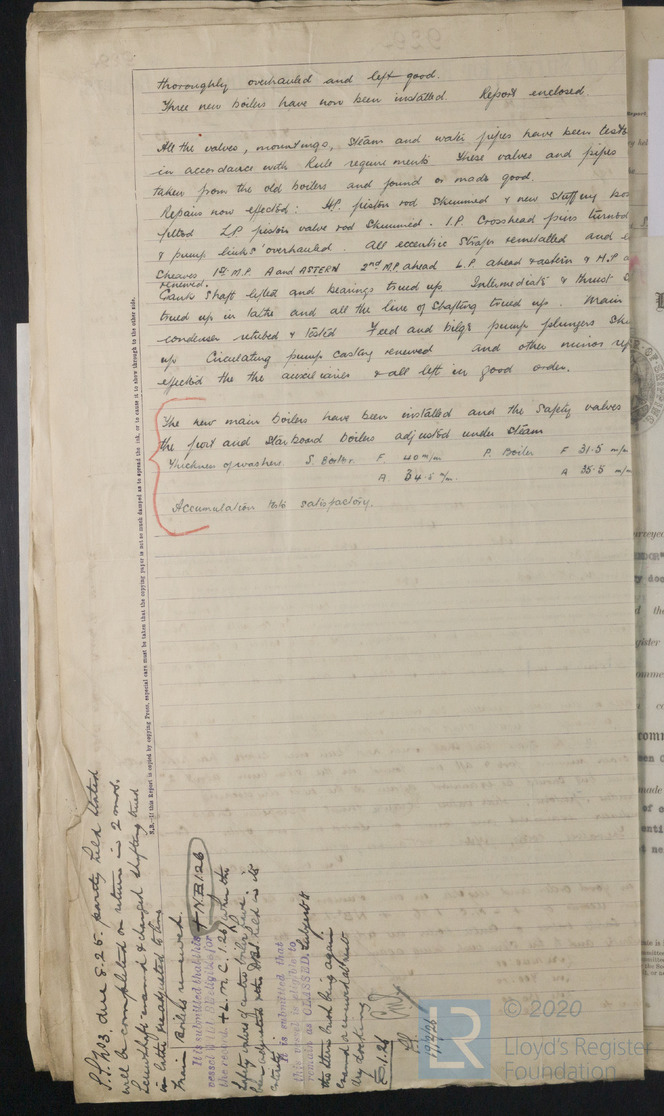 thoroughly overhauled and left good.
Three new boilers have now been installed. Report enclosed
All the valves, mountings, steam and water pipes have been teste
in accordance with Rule requirements These valves and pipes
taken from the old boilers and found or made good.
Repairs now effected: H.P. piston rod skimmed & new stuffing box
fitted LP piston valve rod skimmed. I.P. Crosshead pins turned
& pump links overhauled All eccentric straps remetalled and
Sheaves 1st M.P. A and ASTERN 2nd M.P. ahead L.P ahead & astern & H.P
renewed.
Crank shaft lifted and bearings trued up Intermediate & thrust
trued up in lathe and all the line of shafting trued up. Main
condenser retubed & tested Feed and bilge pump plungers
up Circulating pump casting renewed and other minor rep
effected the the auxiliaries & all left in good order.
The new main boilers have been installed and the Safety valves
the port and Starboard boilers adjusted under steam
Thickness of washers. S. Boiler. F. 40 m/m. P. Boiler F 31.5 m/m
A. 34.5 m/m. A 35.5 m/m
Accumulation tests satisfactory.
N.B.—If this Report is copied by copying Press, especial care must be taken that the copying paper is not so much damped as to spread the ink, or to cause it to show through to the other side.
S.S. No3 due 8.25. partly held stated
will be completed on return in 2 mos.
Screwshaft examd & changed shafting trued
in lathe readjusted to line
Main Boilers renewed.
It is submitted that this
vessel is eligible for
the record + L.M.C. 1.26 when the
+ N.B 1.26
It is submitted that
this vessel is eligible to
remain as CLASSED. Subject to
the stern bush being again
examd
dry docking
1.26
19/2/26
© 2020
Lloyd's Register
Foundation
LR